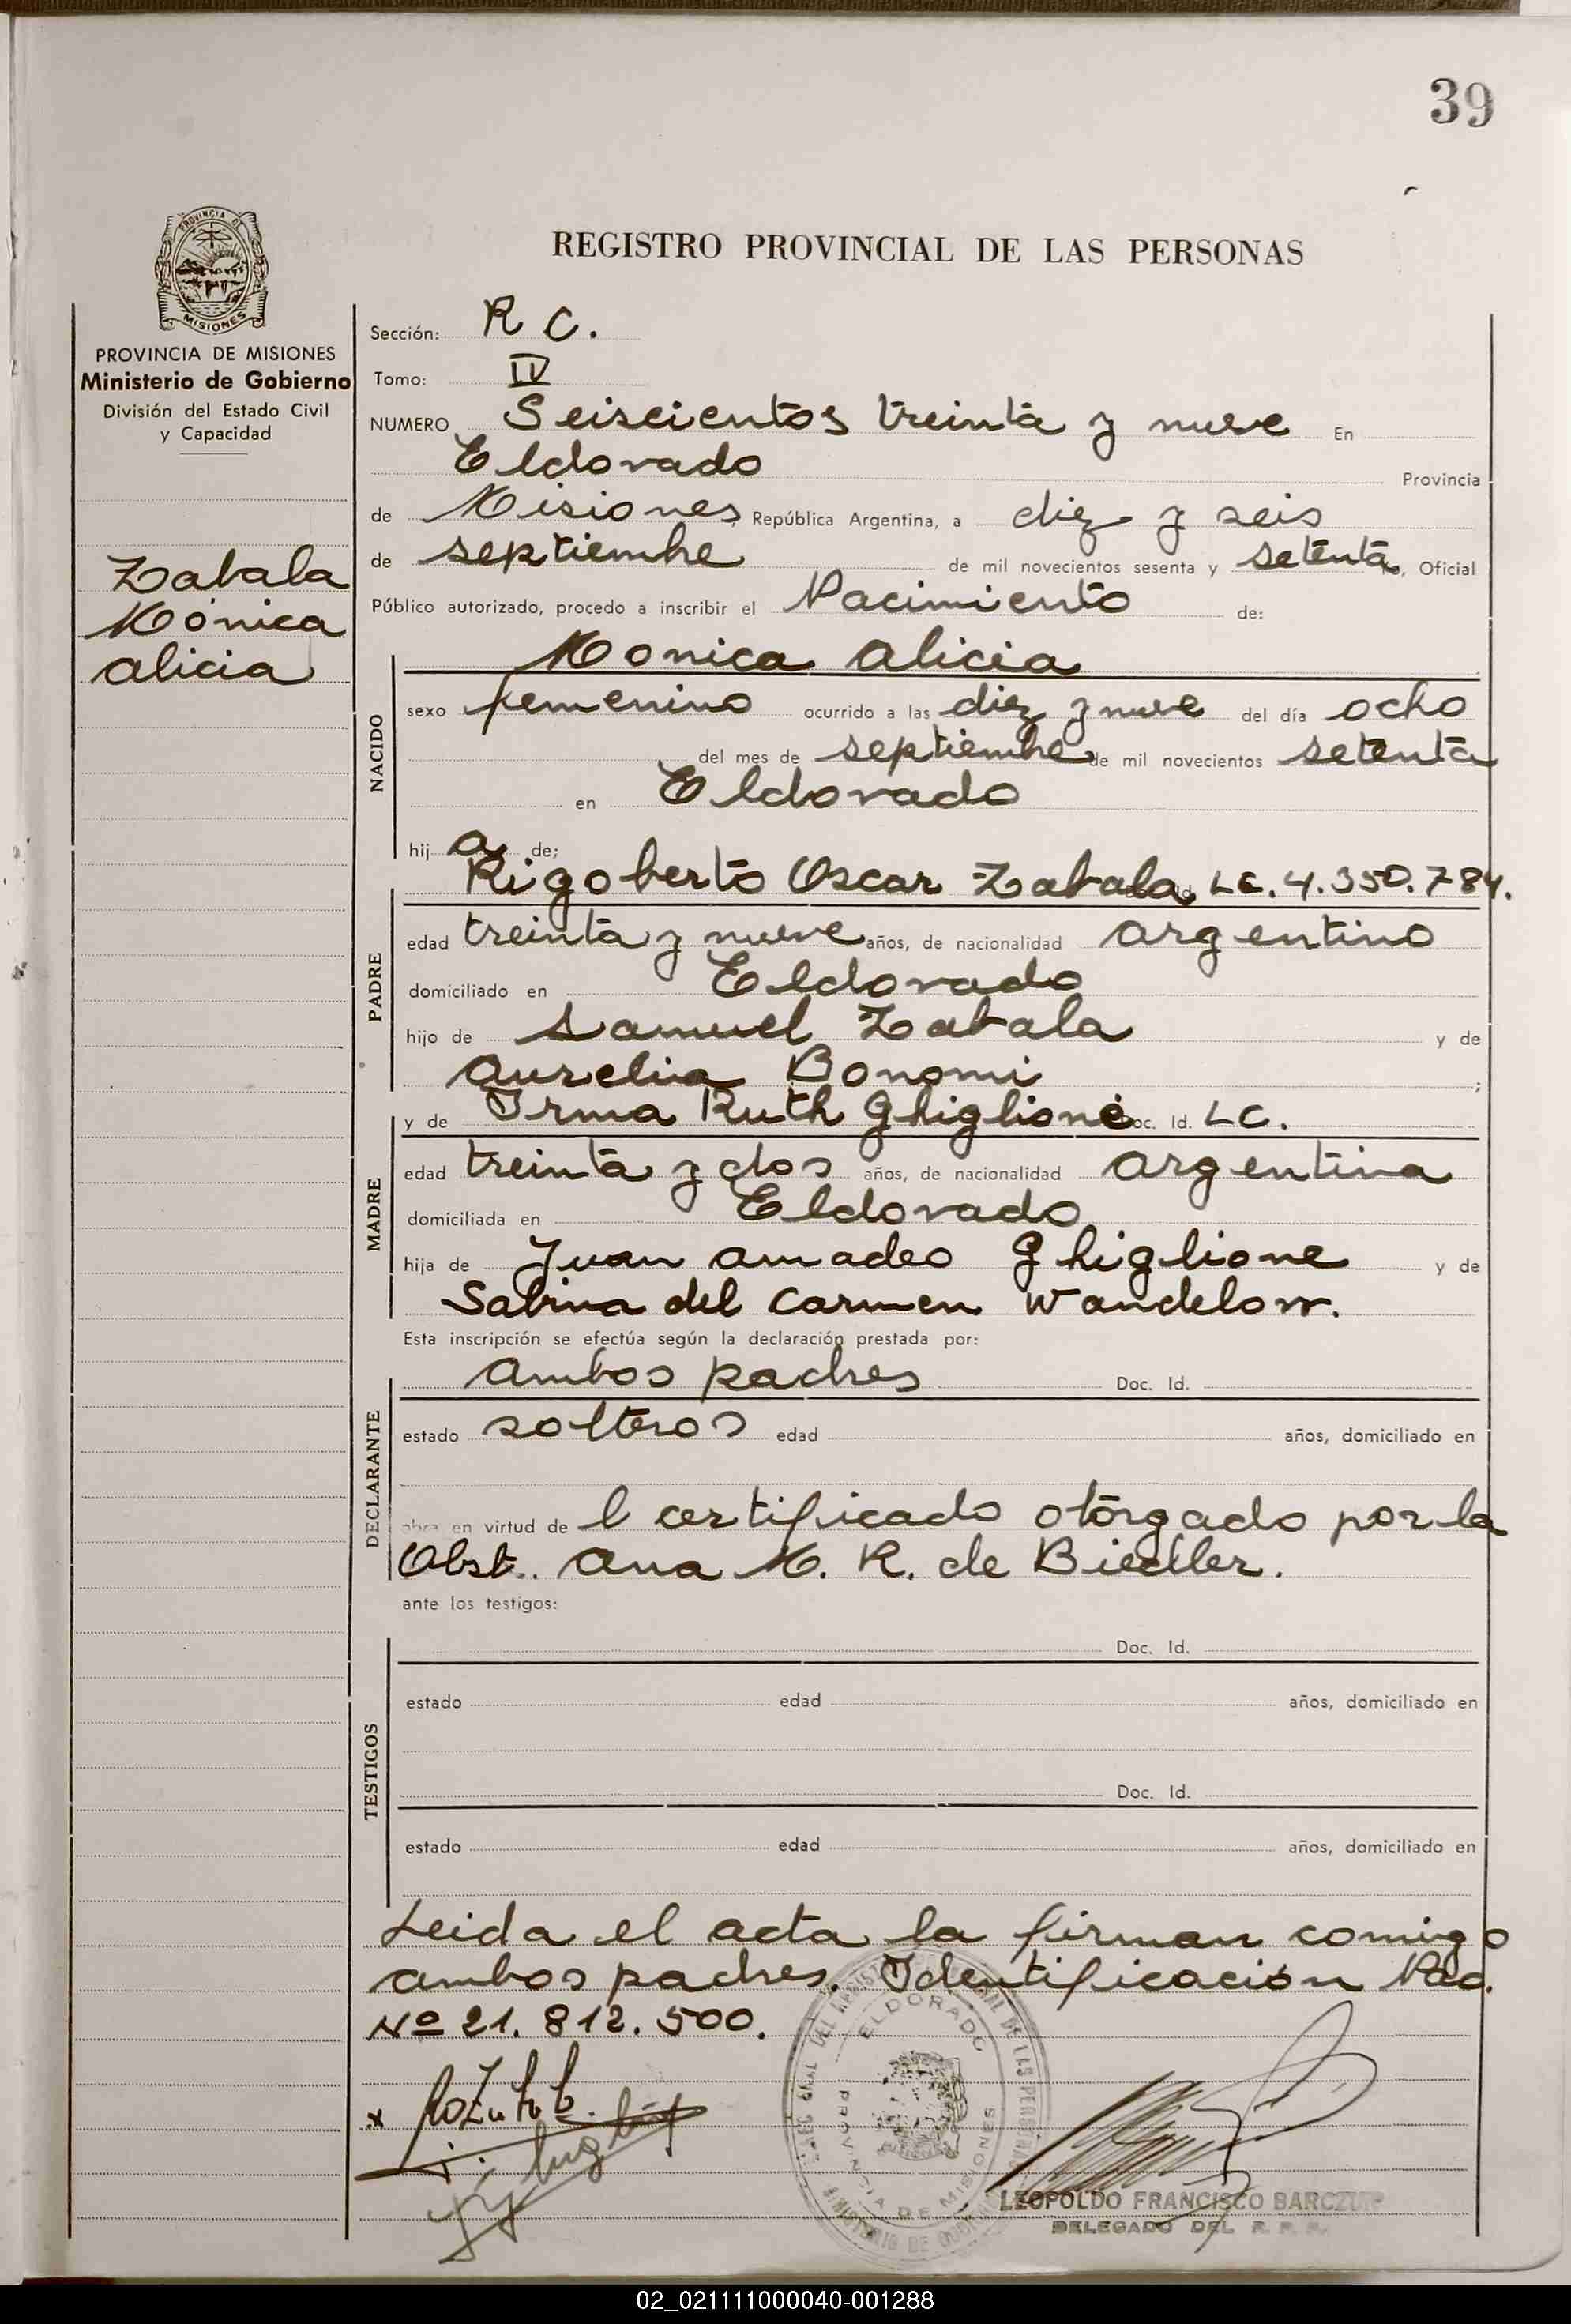 39
PROVINCIA DE
MISIONES
REGISTRO PROVINCIAL DE LAS PERSONAS
PROVINCIA DE MISIONES
Ministerio de Gobierno
División del Estado Civil
y Capacidad
Zabala
Mónica
Alicia
Sección: R C.
Tomo: IV
NUMERO Seiscientos treinta y nueve En
Eldorado Provincia
de Misiones República Argentina, a diez y seis
de septiembre de mil novecientos sesenta y setenta, Oficial
Público autorizado, procedo a inscribir el Nacimiento de:
NACIDO
Monica Alicia
sexo femenino ocurrido a las diez y nueve del día ocho
del mes de septiembre de mil novecientos setenta
en Eldorado
hij a de;
PADRE
Rigoberto Oscar Zabala LE. 4.350.784.
edad treinta y nueve años, de nacionalidad argentino
domiciliado en Eldorado
hijo de Samuel Zabala y de
Aurelia Bonomi ;
MADRE
y de Irma Ruth Ghiglione Doc. Id. LC.
edad treinta y dos años, de nacionalidad argentina
domiciliada en Eldorado
hija de Juan Amadeo Ghiglione y de
Sabina del Carmen Wandelow.
Esta inscripción se efectúa según la declaración prestada por:
DECLARANTE
ambos padres Doc. Id.
estado solteros edad años, domiciliado en
obra en virtud de l certificado otorgado por la
Obst. Ana M. R. de Biedler.
ante los testigos:
TESTIGOS
Doc. Id.
estado edad años, domiciliado en
Doc. Id.
estado edad años, domiciliado en
Leida el acta la firman comigo
ambos padres. Identificación Nac.
Nº 21.812.500.
ELDORADO
PROVINCIA DE MISIONES
LEOPOLDO FRANCISCO
DELEGADO DEL R. P. P.
02_021111000040-001288